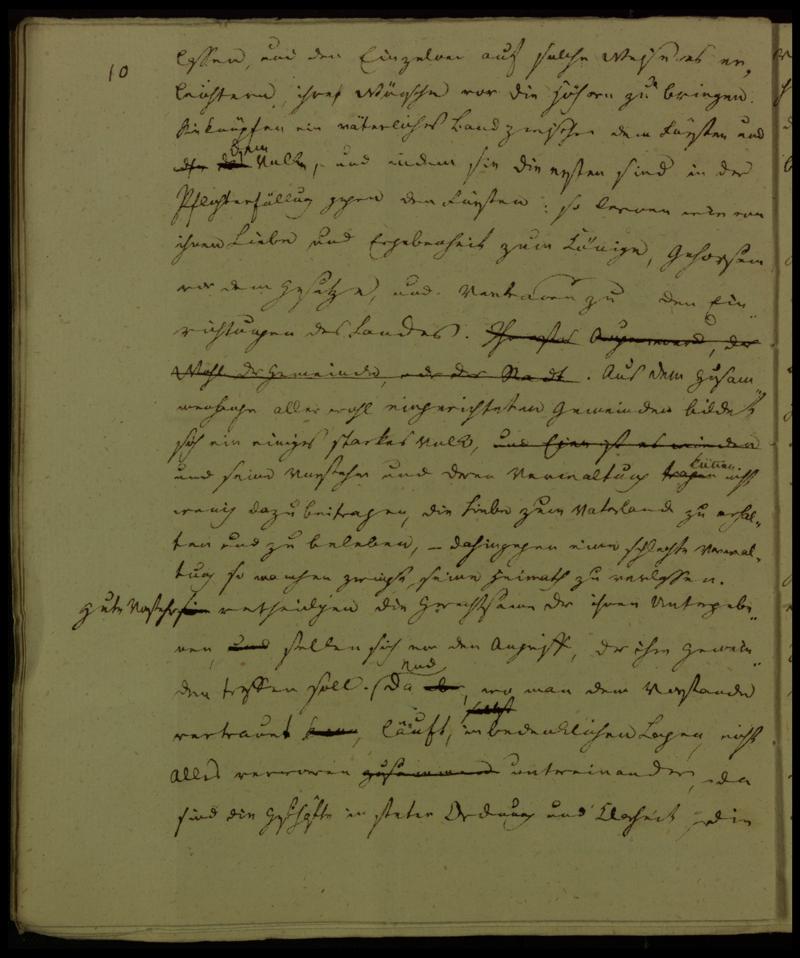 10
lassen, und den Einzelnen auf solche Weise es er-
leichtern, ihre Wünsche vor die höhern zu bringen.
Sie knüpfen ein väterliches Band zwischen dem Fürsten und
dem Volke, und indem sie die ersten sind in der
Pflichterfüllung gegen den Fürsten: so lernen wir von
ihnen Liebe und Ergebenheit zum Könige, Gehorsam
vor dem Gesetze, und Vertrauen zu den Ein-
richtungen des Landes. der
Wohl der Gemeinde, oder der Stadt. Aus dem Zusam-
menhange aller wohl eingerichteten Gemeinden bildet
sich ein einiges starkes Volk, und hier ist es wieder
und seine Vorsteher und deren Verwaltung tragen können nicht
wenig dazu beitragen, die Liebe zum Vaterlande zu erhal-
ten und zu beleben, – dahingegen eine schlechte Verwal-
tung so manchen zwingt, seine Heimath zu verlassen.
gute Vorsteher vertheidigen die Gerechtsame der ihren Untergebe-
nen, und stellen sich vor den Angriff, der ihre Gemein-
den treffen soll. Da nur, wo man dem Vorstande
vertrauet, läuft, selbst in bedenklichen Lagen, nicht
alles verworren untereinander, da
sind die Geschäfte in steter Ordnung und Klarheit, die